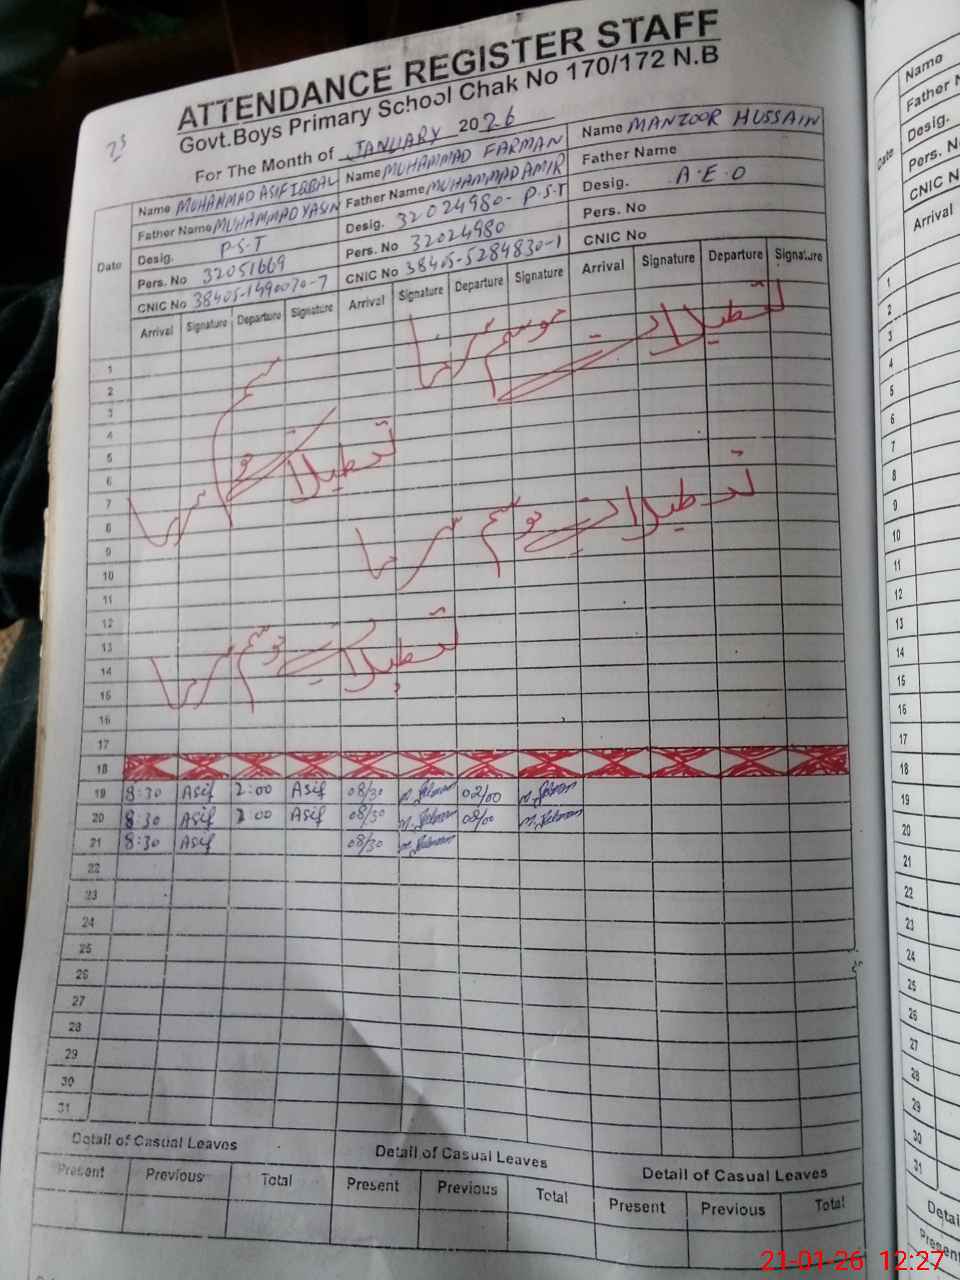 ATTENDANCE REGISTER STAFF
Govt.Boys Primary School Chak No 170/172 N.B
25
For The Month of JANUARY 2026
Date
Name MUHAMMAD ASIF IQBAL
Father Name MUHAMMAD YASIN
Desig. P.S.T
Pers. No 32051669
CNIC No 38405-1490070-7
Arrival Signature Departure Signature
Name MUHAMMAD FARMAN
Father Name MUHAMMAD AMIR
Desig. 32024980- P.S.T
Pers. No 32024980
CNIC No 38405-5284830-1
Arrival Signature Departure Signature
Name MANZOOR HUSSAIN
Father Name
Desig. A.E.O
Pers. No
CNIC No
Arrival Signature Departure Signature
1
2
3
4
5
6
7
8
9
10
11
12
13
14
15
16
17
18
تعطیلات موسم سرما
تعطیلات موسم سرما
تعطیلات موسم سرما
تعطیلات موسم سرما
19 8:30 Asif 2:00 Asif 08/30 02/00
20 8:30 Asif 2:00 Asif 08/30 02/00
21 8:30 Asif 08/30
22
23
24
25
26
27
28
29
30
31
Detail of Casual Leaves Detail of Casual Leaves Detail of Casual Leaves
Present Previous Total Present Previous Total Present Previous Total
Date
Name
Father N
Desig.
Pers. No
CNIC No
Arrival
1
2
3
4
5
6
7
8
9
10
11
12
13
14
15
16
17
18
19
20
21
22
23
24
25
26
27
28
29
30
31
Detai
Present
21-01-26 12:27